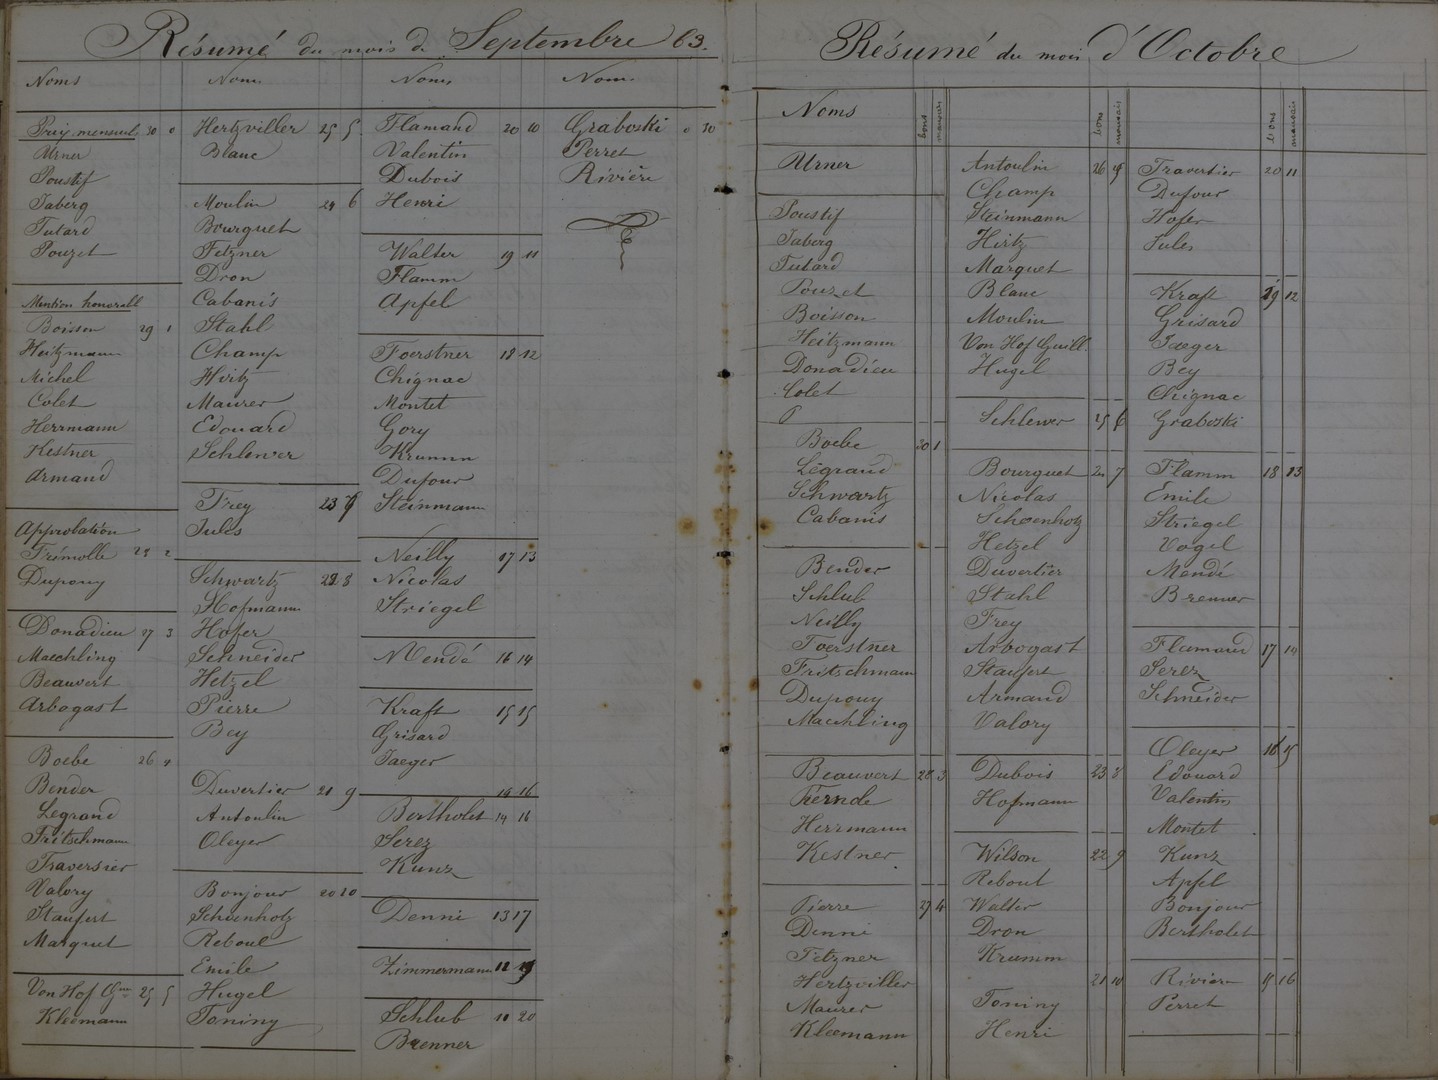 Résumé du mois de Septembre 63.
Noms
Prix mensuel 30 0
Urner
Poustif
Jaberg
Tutard
Pouzet
Mention honorabl
Boisson 29 1
Heitzmann
Michel
Colet
Herrmann
Kestner
Armand
Approbation
Trémolle 28 2
Dupouy
Donadieu 27 3
Maechling
Beauvert
Arbogast
Boebe 26 4
Bender
Legrand
Fritschmann
Traversier
Valory
Staufert
Marquet
Von Hof Gme 25 5
Kleemann
Noms
Hertzviller 25 5
Blanc
Moulin 24 6
Bourguet
Fetzner
Dron
Cabanis
Stahl
Champ
Hirtz
Maurer
Edouard
Schlewer
Frey 23 7
Jules
Schwartz 22 8
Hofmann
Hofer
Schneider
Hetzel
Pierre
Bey
Duvertier 21 9
Antoulin
Oleyer
Bonjour 20 10
Schoenholz
Reboul
Emile
Hugel
Toniny
Noms
Flamand 20 10
Valentin
Dubois
Henri
Walter 19 11
Flamm
Apfel
Foerstner 18 12
Chignac
Montet
Gory
Krumm
Dufour
Steinmann
Neilly 17 13
Nicolas
Striegel
Mendé 16 14
Kraft 15 15
Grisard
Jaeger
14 16
Bertholet 14 16
Serez
Kunz
Denni 13 17
Zimmermann 11 19
Schlub 10 20
Brenner
Noms
Graboski 0 30
Perret
Rivière
Résumé du mois d'Octobre
Noms bons mauvais
Urner
Poustif
Jaberg
Tutard
Pouzet
Boisson
Heitzmann
Donadieu
Colet
Boebe 30 1
Légrand
Schwartz
Cabanis
Bender
Schlub
Neilly
Foerstner
Fritschmann
Dupouy
Maechling
Beauvert 28 3
Herrmann
Kestner
Pierre 27 4
Denni
Fetzner
Hertzviller
Maurer
Kleemann
bons mauvais
Antoulin 26
Champ
Steinmann
Hirtz
Marquet
Blanc
Moulin
Von Hof Guill.
Hugel
Schlewer 25 6
Bourguet 24 7
Nicolas
Schoenholz
Hetzel
Duvertier
Stahl
Frey
Arbogast
Staufert
Armand
Valory
Dubois 23 8
Hofmann
Wilson 22 9
Reboul
Walter
Dron
Krumm
21 10
Toniny
Henri
bons mauvais
Traversier 20 11
Dufour
Hofer
Jules
Kraft 19 12
Grisard
Jaeger
Bey
Chignac
Graboski
Flamm 18 13
Emile
Striegel
Vogel
Mendé
Brenner
Flamand 17 14
Serez
Schneider
Oleyer 16 15
Edouard
Valentin
Montet
Kunz
Apfel
Bonjour
Bertholet
Rivière 15 16
Perret